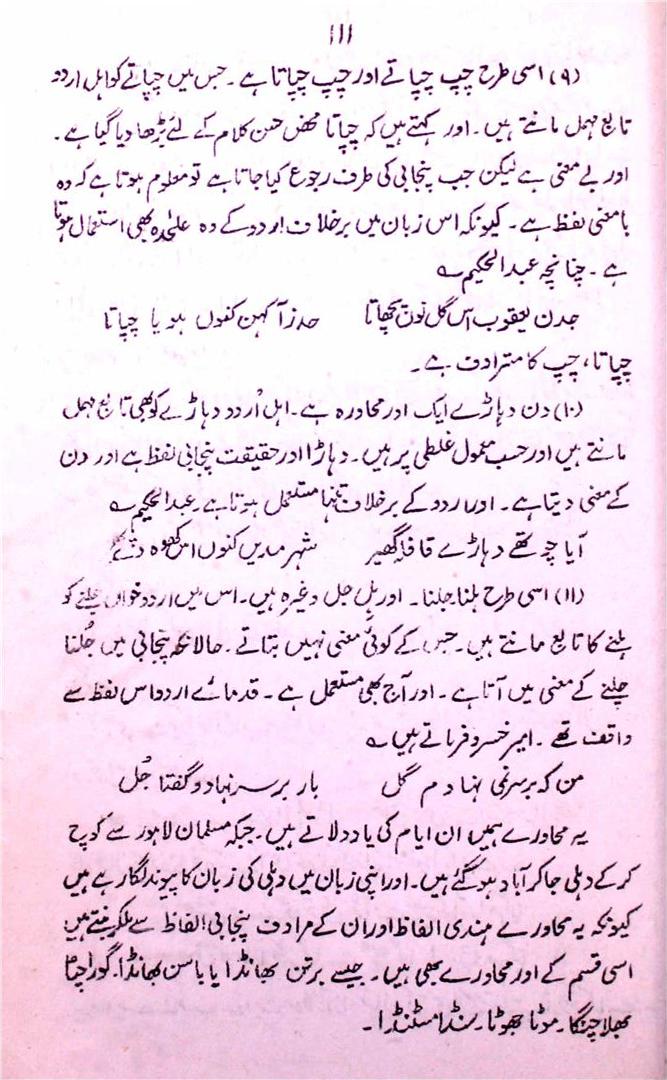 ۱۱۱
(۹) اسی طرح چپ چپاتے اور چپ چپاتا ہے۔ جس میں چپاتے کو اہل اردو
تابع مہمل مانتے ہیں۔ اور کہتے ہیں کہ چپاتا محض حسن کلام کے لئے بڑھا دیا گیا ہے۔
اور بے معنی ہے لیکن جب پنجابی کی طرف رجوع کیا جاتا ہے تو معلوم ہوتا ہے کہ وہ
بامعنی لفظ ہے۔ کیونکہ اس زبان میں برخلاف اردو کے وہ علیٰحدہ بھی استعمال ہوتا
ہے۔ چنانچہ عبدالحکیم ؎
جدن یعقوب اس گل نوں پچھاتا حذر آکہن کنوں ہویا چپاتا
چپاتا، چپ کا مترادف ہے۔
(۱۰) دن دہاڑے ایک اور محاورہ ہے۔ اہل اُردو دہاڑے کو بھی تابع مہمل
مانتے ہیں اور حسب معمول غلطی پر ہیں۔ دہاڑا در حقیقت پنجابی لفظ ہے اور دن
کے معنی دیتا ہے۔ اور اردو کے برخلاف تنہا مستعمل ہوتا ہے۔ عبدالحکیم ؎
آیا چوتھے دہاڑے قافلہ گھیر شہر مدیں کنوں اس کھوہ دتے
(۱۱) اسی طرح ہلنا جلنا۔ اور ہل جل وغیرہ ہیں۔ اس میں اردو خواں جلنے کو
ہلنے کا تابع مانتے ہیں۔ جس کے کوئی معنی نہیں بتاتے۔ حالانکہ پنجابی میں جُلنا
چلنے کے معنی میں آتا ہے۔ اور آج بھی مستعمل ہے۔ قدمائے اردو اس لفظ سے
واقف تھے۔ امیر خسرو فرماتے ہیں ؎
من کہ برسر نمی نہادم گل بار برسر نہاد و گفتا جُل
یہ محاورے ہمیں ان ایام کی یاد دلاتے ہیں۔ جبکہ مسلمان لاہور سے کوچ
کر کے دہلی جا کر آباد ہو گئے ہیں۔ اور اپنی زبان میں دہلی کی زبان کا پیوند لگا رہے ہیں
کیونکہ یہ محاورے ہندی الفاظ اور ان کے مرادف پنجابی الفاظ سے ملکر بنتے ہیں
اسی قسم کے اور محاورے بھی ہیں۔ جیسے برتن بھانڈا یا باسن بھانڈا۔ گورا چٹا
بھلا چنگا۔ موٹا جھوٹا۔ سنڈا مسٹنڈا۔